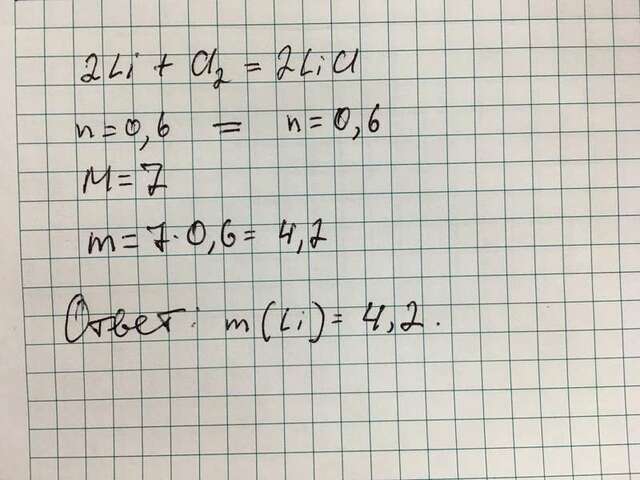 2Li + Cl₂ = 2LiCl
n = 0,6 = n = 0,6
M = 7
m = 7·0,6 = 4,2
Ответ: m(Li) = 4,2.